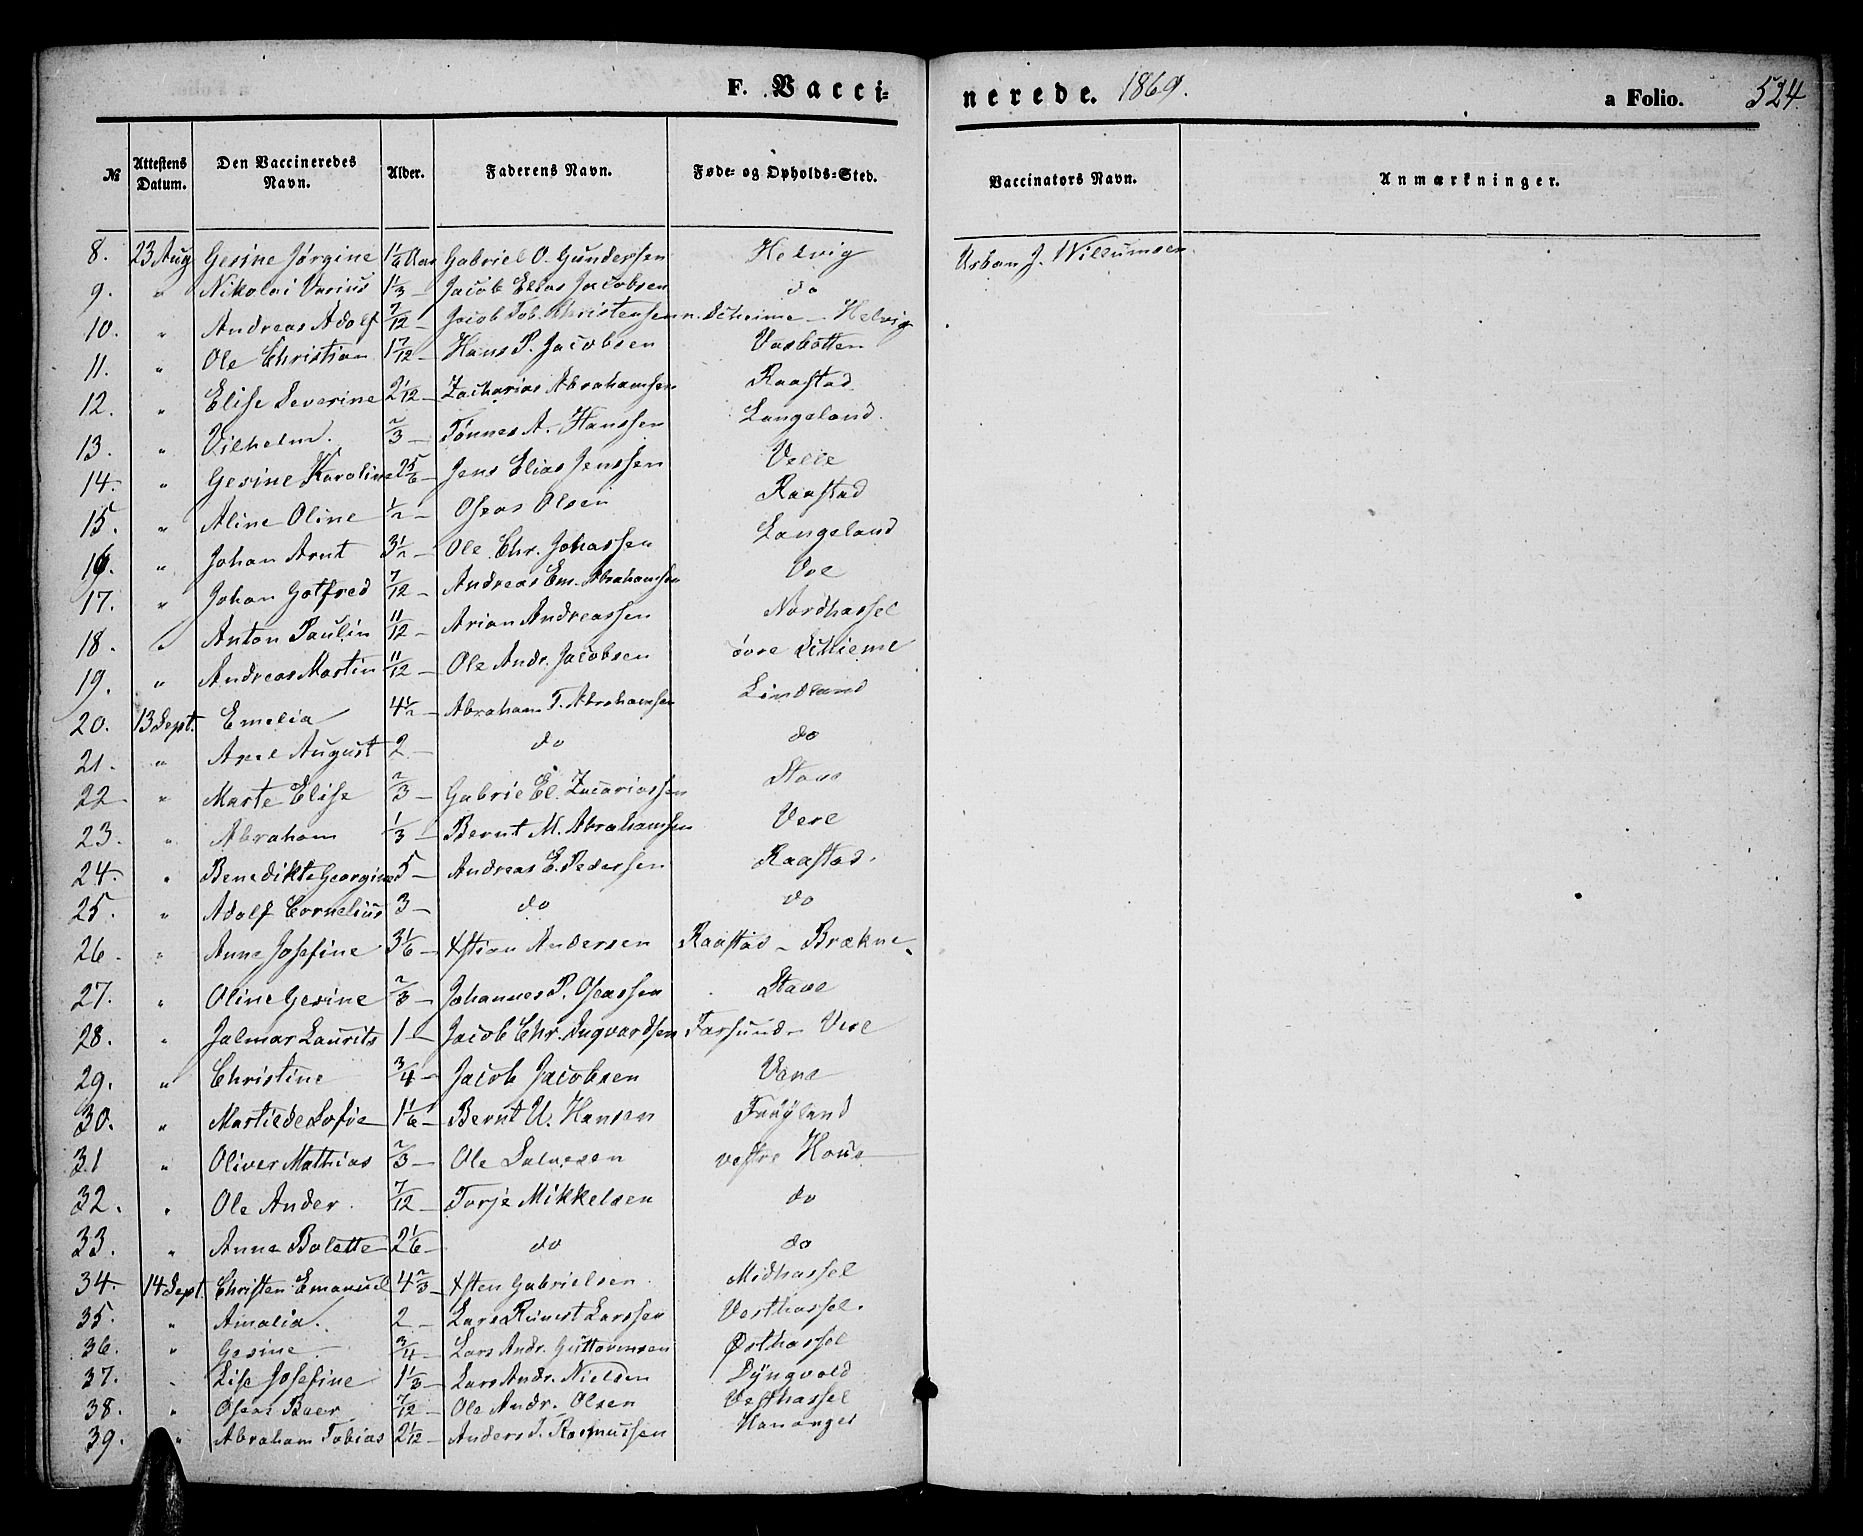 F. Vacci-
nerede. 1869.
a Folio. 524.
№ Attestens Datum. Den Vaccineredes Navn. Alder. Faderens Navn. Føde- og Opholds-Sted. Vaccinators Navn. Anmærkninger.
8. 23 Aug Gesine Jørgine 1¼ Aar Gabriel O. Gundersen Helvig Urban J. Willumsen.
9. " Nikolai Varius 1⅓ – Jacob Elias Jacobsen do
10. " Andreas Adolf 7/12 – Jacob Tob. Christensen n. Skeime – Helvig
11. " Ole Christian 1 7/12 – Hans P. Jacobsen Vasbotten
12. " Elise Severine 2 1/12 – Zacharias Abrahamsen Raastad
13. " Vilhelm. 2/3 – Tønnes A. Hanssen Langeland.
14. " Gesine Karoline 2 5/6 – Jens Elias Jenssen Velle
15. " Aline Oline ½ – Oseas Olsen Raastad
16. " Johan Arnt 3½ – Ole Chr. Johassen Langeland
17. " Johan Gotfred 7/12 – Andreas Em. Abrahamsen Ore
18. " Anton Paulin 11/12 – Arian Andreassen Nordhassel
19. " Andreas Martin 11/12 – Ole Andr. Jacobsen øvre Skieme
20. 13 Sept. Emelia 4½ – Abraham T. Abrahamsen Lindland
21. " Axel August 2 – do do
22 " Marte Elise 2/3 – Gabriel El. Zacariassen Stave
23. " Abraham 1/3 – Bernt M. Abrahamsen Vere
24. " Benedikte Georgine 5 – Andreas E. Pedersen Raastad.
25. " Adolf Cornelius 3 – do do
26. " Anne Josefine 3 1/6 – Xstian Andersen Raastad – Brækne
27. " Oline Gesine 2/3 – Johannes P. Oseassen Stave
28. " Jalmar Laurits 1 – Jacob Chr. Ingvardsen Farsund – Vere
29. " Christine 3/4 – Jacob Jacobsen Vane
30. " Martilde Sofie 1 1/6 – Bernt U. Hansen Frøyland
31 " Oliver Mathias 2/3 – Ole Salvesen vestre Haue
32. " Ole Ander. 7/12 – Torje Mikkelsen do
33. " Anne Bolette 2 1/6 – do do
34. 14 Sept Christen Emanuel 4 2/3 – Xsten Gabrielsen. Midhassel
35. " Amalia. 2 – Lars Larssen Vesthassel.
36. " Gesine – 3/4 – Lars Andr. Guttormsen Østhassel
37. " Lise Josefine 1⅓ – Lars Andr. Nielsen Dyngvold
38. " Oseas Baer 7/12 – Ole Andr. Olsen Vesthassel
39. " Abraham Tobias 2 1/12 – Anders T. Rasmussen Hananger